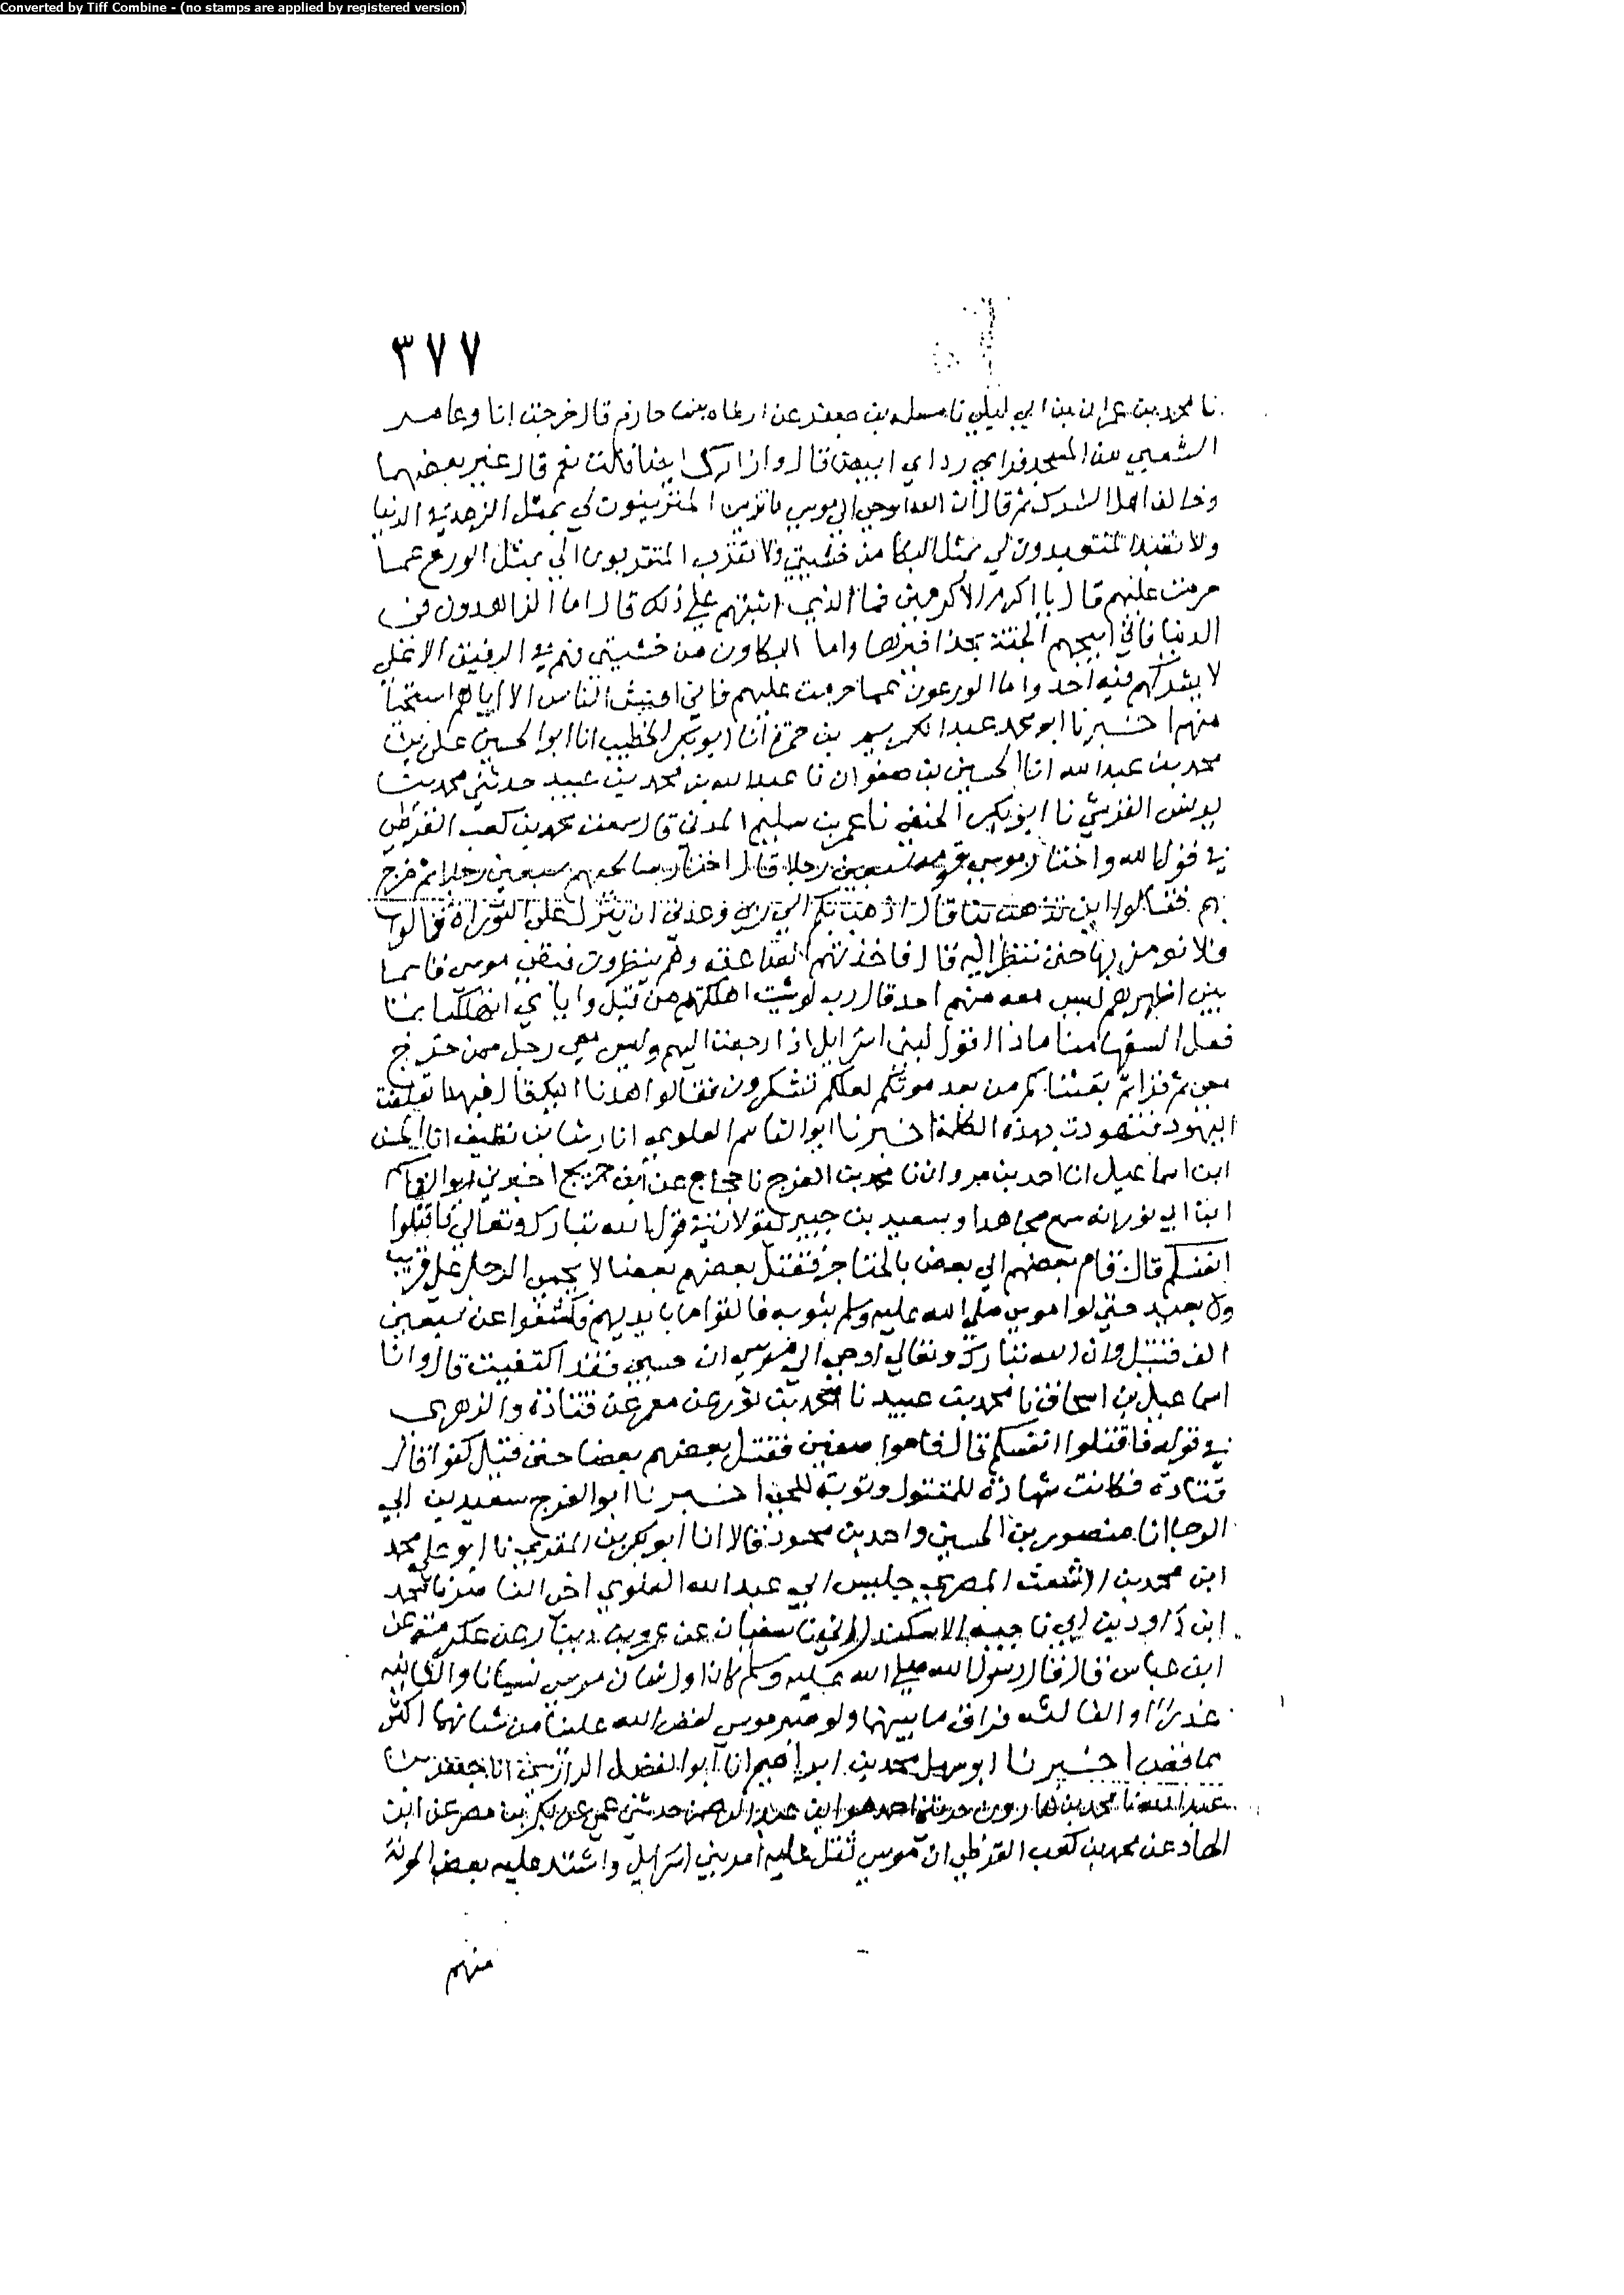 Converted by Tiff Combine - (no stamps are applied by registered version)
٣٧٧
نا محمد بن عمران بن ابي ليلي نا مسلمه بن جعفر عن قال خرجت انا وعامر
الشعبي من المسجد فراي رداي ابيض قال وازارك ايضا قلت نعم قال غير بعضهما
وخالف اهل الشرك ثم قال ان الله اوحي الي موسي ما تزين المتزينون لي بمثل الزهد في الدنيا
ولا تعبد المتعبدون لي بمثل البكا من خشيتي ولا تقرب المتقربون الي بمثل الورع عما
حرمت عليهم قال يا اكرم الاكرمين فما الذي اثبتهم علي ذلك قال اما الزاهدون في
الدنيا فاني ابيحهم الجنة بحذافيرها واما البكاون من خشيتي فهم في الرفيق الاعلي
لا يشركهم فيه احد واما الورعون عما حرمت عليهم فاني افتش الناس الا اياهم استحيا
منهم اخبرنا ابو محمد عبد الكريم بن حمزة انا ابو بكر الخطيب انا ابو الحسين علي بن
محمد بن عبد الله انا الحسين بن صفوان نا عبد الله بن محمد بن عبيد حدثني محمد بن
يونس القرشي نا ابو بكر الحنفي نا عمر بن سليم المدني قال سمعت محمد بن كعب القرظي
في قول الله واختار موسي قومه سبعين رجلا قال اختار صالحهم سبعين رجلا ثم خرج
بهم فقالوا اين تذهب بنا قال اذهب بكم الي ربي وعدني ان ينزل علي التوراة فقالوا
فلا نومن بها حتى ننظر اليه قال فاخذتهم الصاعقة وهم ينظرون فبقي موسي قايما
بين اظهرهم ليس معه منهم احد قال رب لو شيت اهلكتهم من قبل واياي اتهلكنا بما
فعل السفها منا ماذا اقول لبني اسرايل اذا رجعت اليهم وليس معي رجل ممن خرج
معي ثم قرا ثم بعثناكم من بعد موتكم لعلكم تشكرون فقالوا هدنا اليك قال فبهذا تعلقت
اليهود فتهودت بهذه الكلمة اخبرنا ابو القاسم العلوي انا رشا بن نظيف انا الحسن
ابن اسماعيل انا احمد بن مروان نا محمد بن الفرج نا حجاج عن ابن جريج اخبرني القاسم
ابن ابي بزه انه سمع مجاهدا وسعيد بن جبير يقولان في قول الله تبارك وتعالي فاقتلوا
انفسكم قال قام بعضهم الي بعض بالخناجر فقتل بعضهم بعضا لا يحن الرجل علي قريب
ولا بعيد حتى لوا موسي صلي الله عليه وسلم بثوبه فالقوا ما بايديهم فكشفوا عن سبعين
الف قتيل وان الله تبارك وتعالي اوحي الي موسي ان حسبي فقد اكتفيت قال وانا
اسماعيل بن اسحاق نا محمد بن عبيد نا محمد بن ثور عن معمر عن قتادة والزهري
في قوله فاقتلوا انفسكم قال قاموا صفين فقتل بعضهم بعضا حتى قيل كفوا قال
قتادة فكانت شهادة للمقتول وتوبة للحي اخبرنا ابو الفرج سعيد بن ابي
الرجا انا منصور بن الحسين واحمد بن محمود قالا انا ابو بكر بن المقري نا ابو علي محمد
ابن محمد بن الاشعث المصري جليس ابي عبد الله العلوي نا محمد
ابن داود بن ابي ناجيه الاسكندراني نا سفيان عن عمرو بن دينار عن عكرمة عن
ابن عباس قال قال رسول الله صلي الله عليه وسلم كان اول شان موسي نسيانا والثانيه
عذرا والثالثه فراق ما بينهما ولو صبر موسي لقص الله علينا من شانهما اكثر
مما قص اخبرنا ابو سهل محمد بن ابراهيم انا ابو الفضل الرازي انا جعفر بن
عبد الله نا محمد بن هارون حدثنا احمد هو ابن عبد الرحمن حدثني عمي عن بكر بن مضر عن ابن
الهاد عن محمد بن كعب القرظي ان موسي ثقل عليه امر بني اسرايل واشتد عليه بعض المونة
منهم